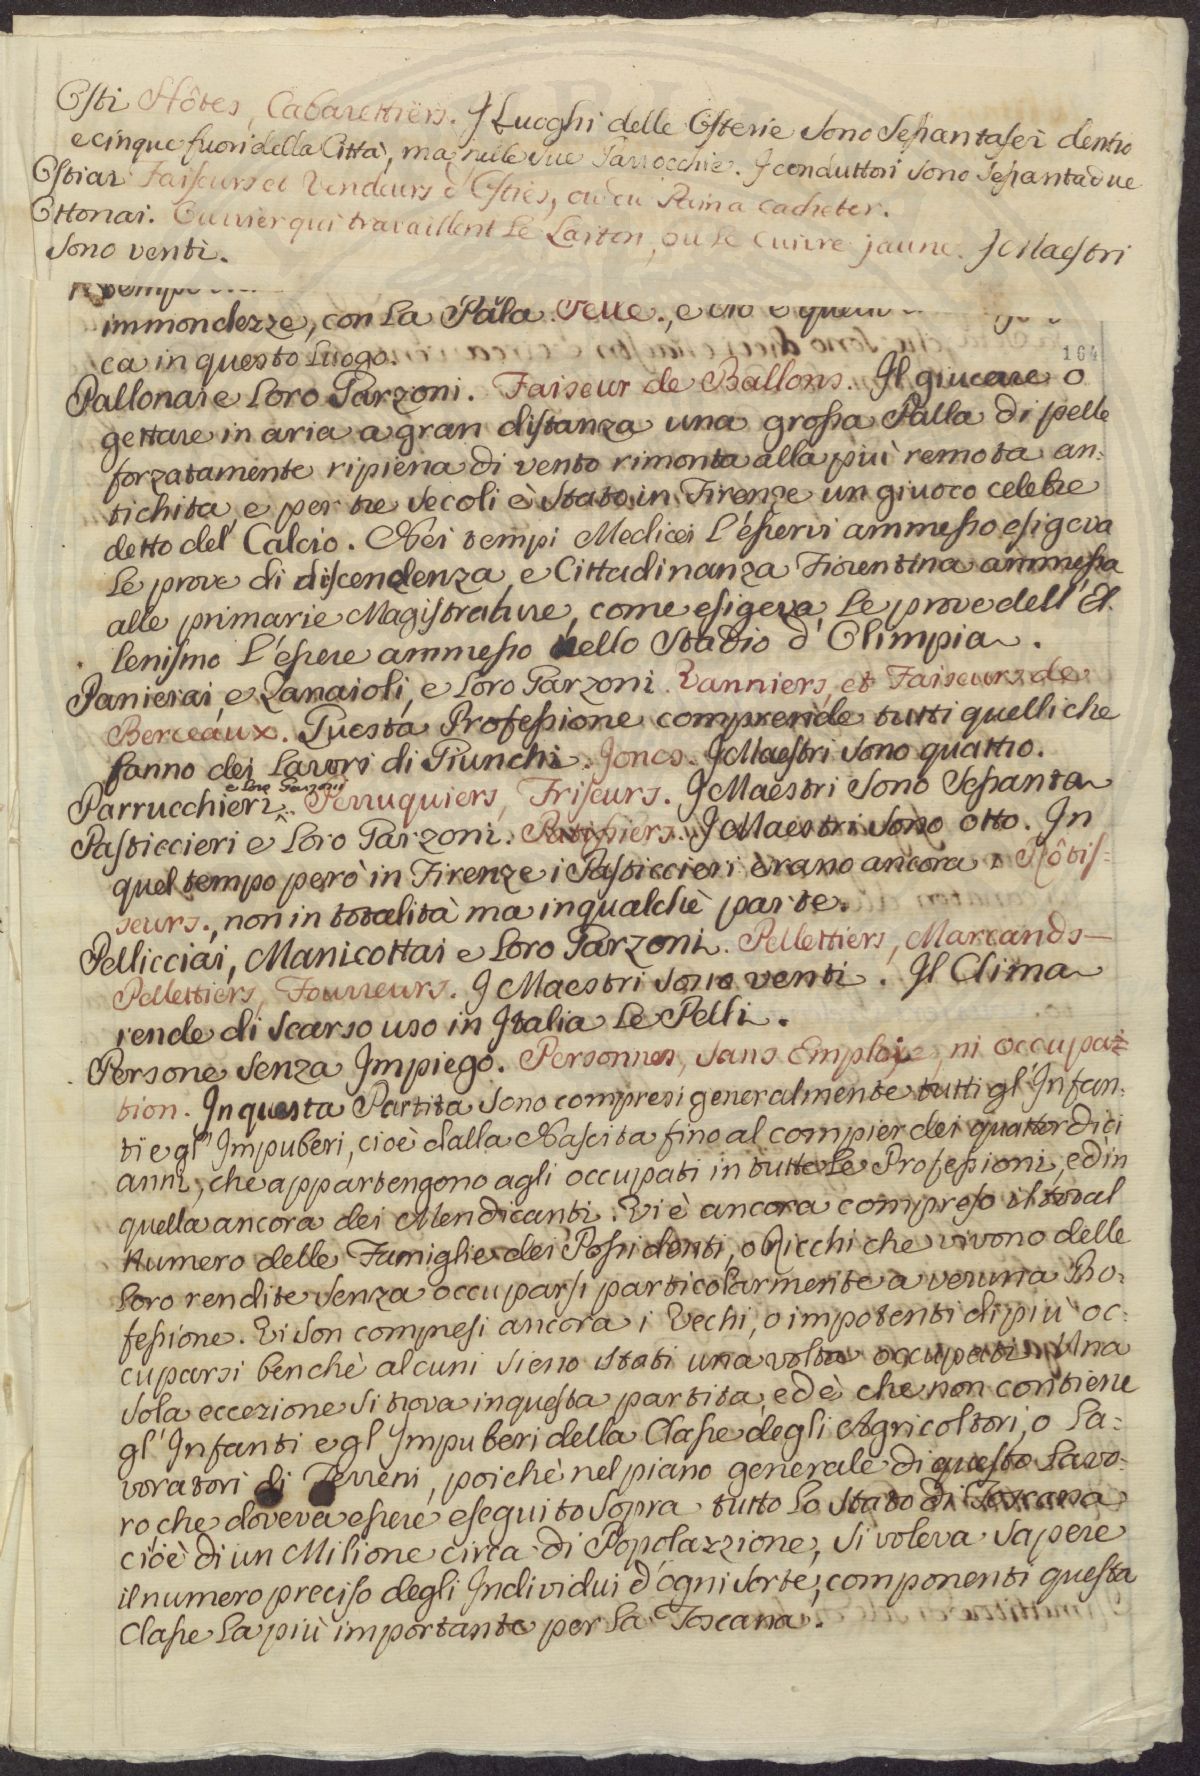 Osti Hôtes, Cabarettiers. I Luoghi delle Osterie sono sessantasei dentro
e cinque fuori della Città, ma nelle sue Parrocchie. I conduttori sono sessantadue
Ostiai Faiseurs et Vendeurs d'Osties, ou du Pain a cacheter.
Ottonai. Ouvrier qui travaillent le Laiton, ou le cuivre jaune. I Maestri
sono venti.
immondezze, con la Pala Pelle., e
ca in questo Luogo.
164
Pallonai e Loro Garzoni. Faiseur de Ballons. Il giucare o
gettare in aria a gran distanza una grossa Palla di pelle
forzatamente ripiena di vento rimonta alla più remota an-
tichità e per tre secoli è stato in Firenze un giuoco celebre
detto del Calcio. Nei tempi Medicei l'esservi ammesso esigeva
le prove di discendenza, e Cittadinanza Fiorentina ammessa
alle primarie Magistrature, come esigeva le prove dell'El-
lenismo l'essere ammesso nello Stadio d'Olimpia.
Panierai, e Zanaioli, e Loro Garzoni. Vanniers, et Faiseurs de
Berceaux. Questa Professione comprende tutti quelli che
fanno dei Lavori di Giunchi. Joncs. I Maestri sono quattro.
e Loro Garzoni
Parrucchieri. Perruquiers, Friseurs. I Maestri sono sessanta
Pasticcieri e Loro Garzoni. Patissiers. I Maestri sono otto. In
quel tempo però in Firenze i Pasticcieri erano ancora i Rôtis-
seurs., non in totalità ma in qualchè parte.
Pellicciai, Manicottai e Loro Garzoni. Pellettiers, Marcands
Pellettiers, Fourreurs. I Maestri sono venti. Il Clima
rende di scarso uso in Italia le Pelli.
Persone senza Impiego. Personnes, sans Emploie, ni occupaz-
tion. In questa Partita sono compresi generalmente tutti gl'Infan-
ti e gl'Impuberi, cioè dalla Nascita fino al compier dei quattordici
anni, che appartengono agli occupati in tutte le Professioni, ed in
quella ancora dei Mendicanti. Vi è ancora compreso il total
numero delle Famiglie dei Possidenti, o Ricchi che vivono delle
loro rendite senza occuparsi particolarmente a veruna Pro-
fessione. Vi son compresi ancora i Vechi, o impotenti di più oc-
cuparsi benchè alcuni sieno stati una volta occupati. Una
sola eccezione si trova in questa partita, ed è che non contiene
gl'Infanti e gl'Impuberi della Classe degli Agricoltori, o La-
voratori di Terreni, poichè nel piano generale di questo Lavo-
ro che doveva essere eseguito sopra tutto lo Stato di Toscana
cioè di un Milione circa di Popolazzione, si voleva sapere
il numero preciso degli Individui d'ogni sorte, componenti questa
Classe la più importante per la Toscana.